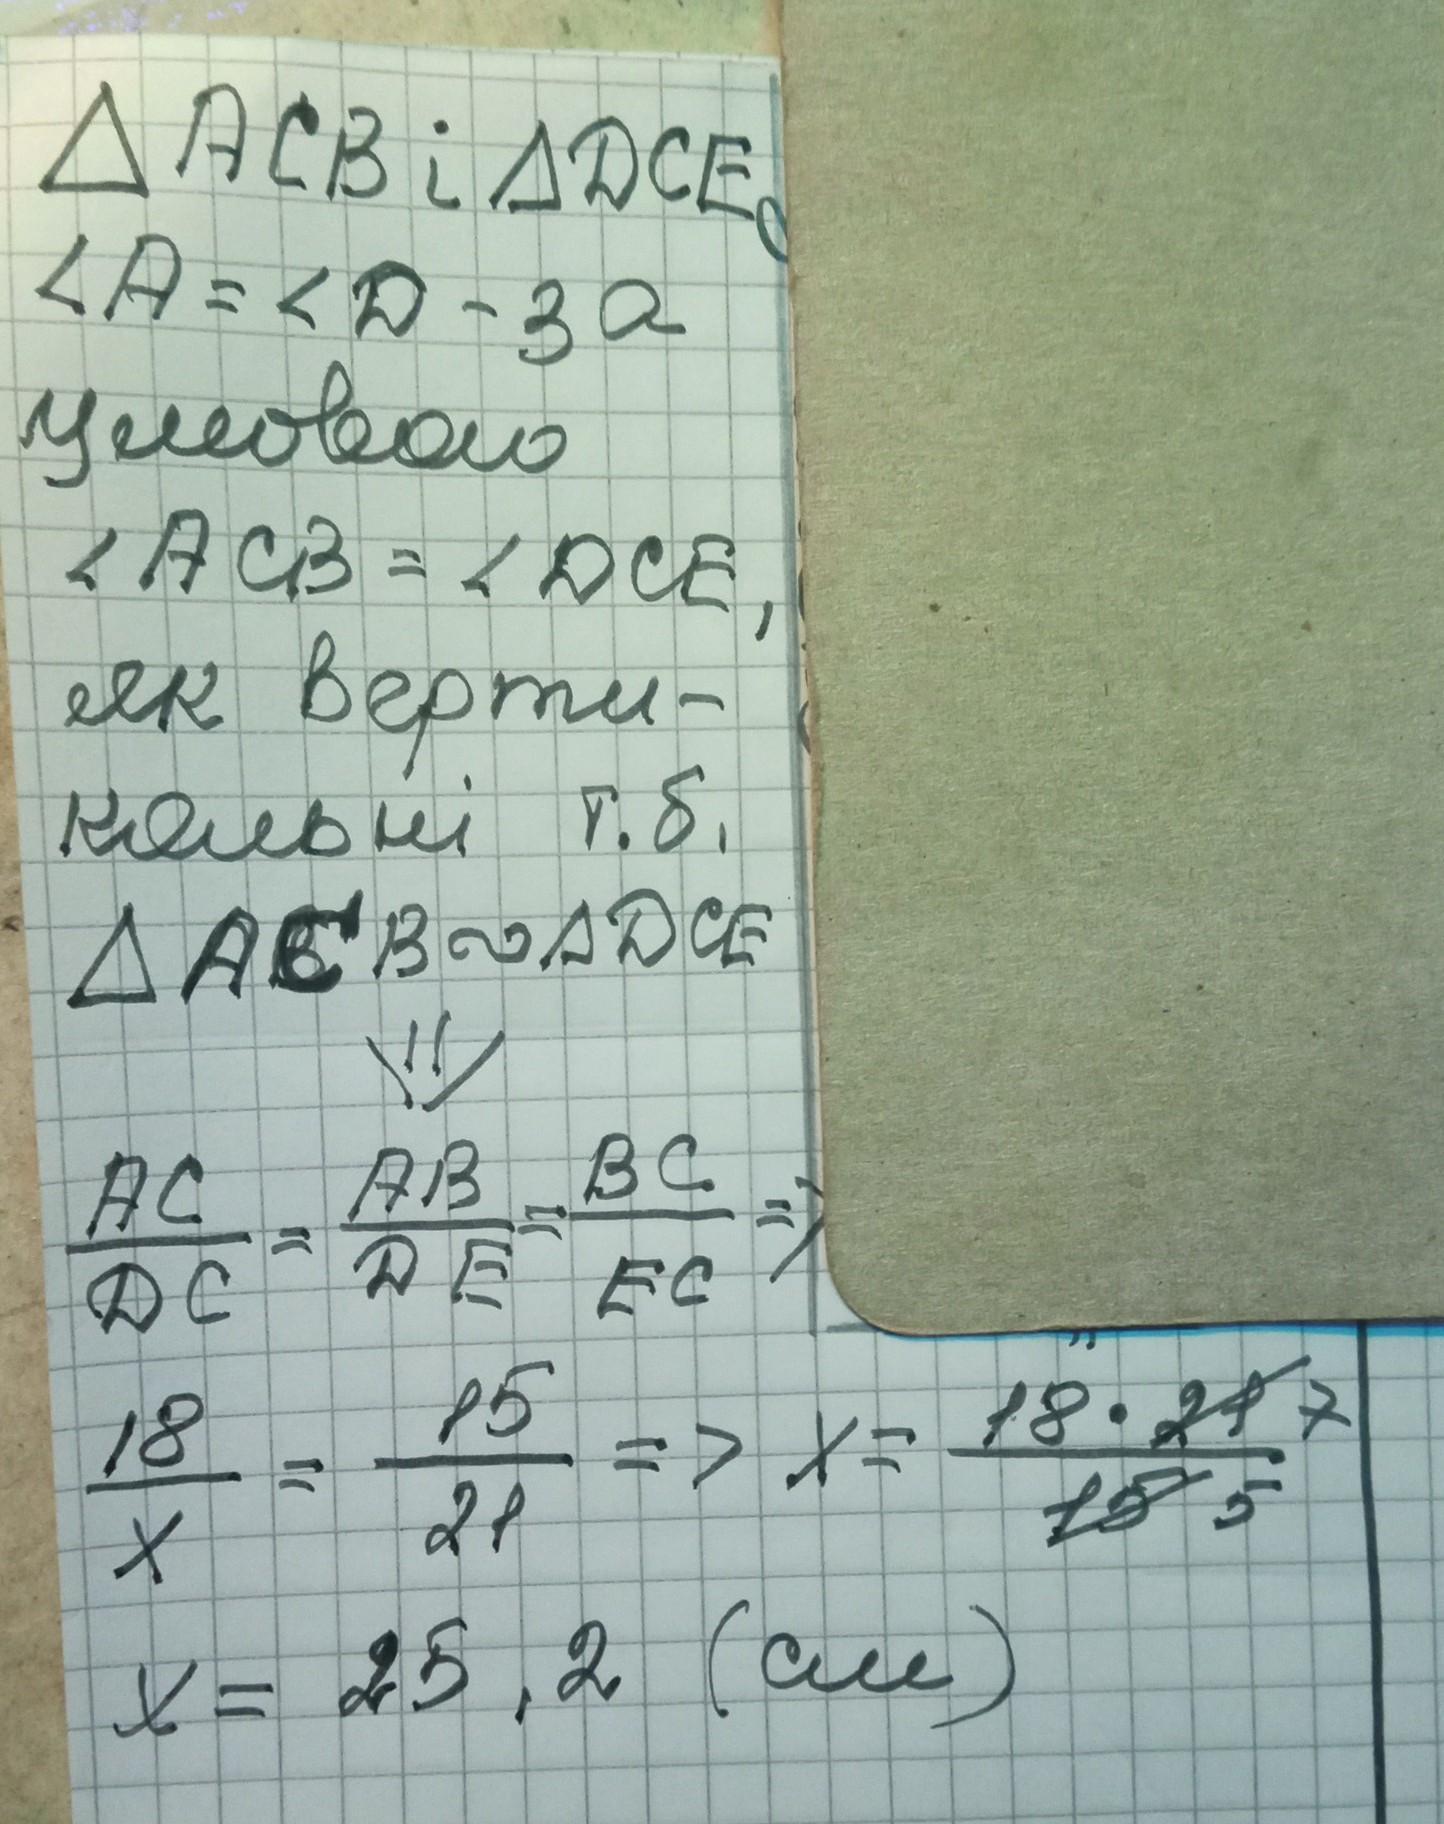 △ACB і △DCE,
<A = <D - за
умовою
<ACB = <DCE,
як верти-
кальні т.б.
△ACB ∾ △DCE
⇓
AC/DC = AB/DE = BC/EC =>
18/x = 15/21 => x = 18·21 7/15 5
x = 25,2 (см)